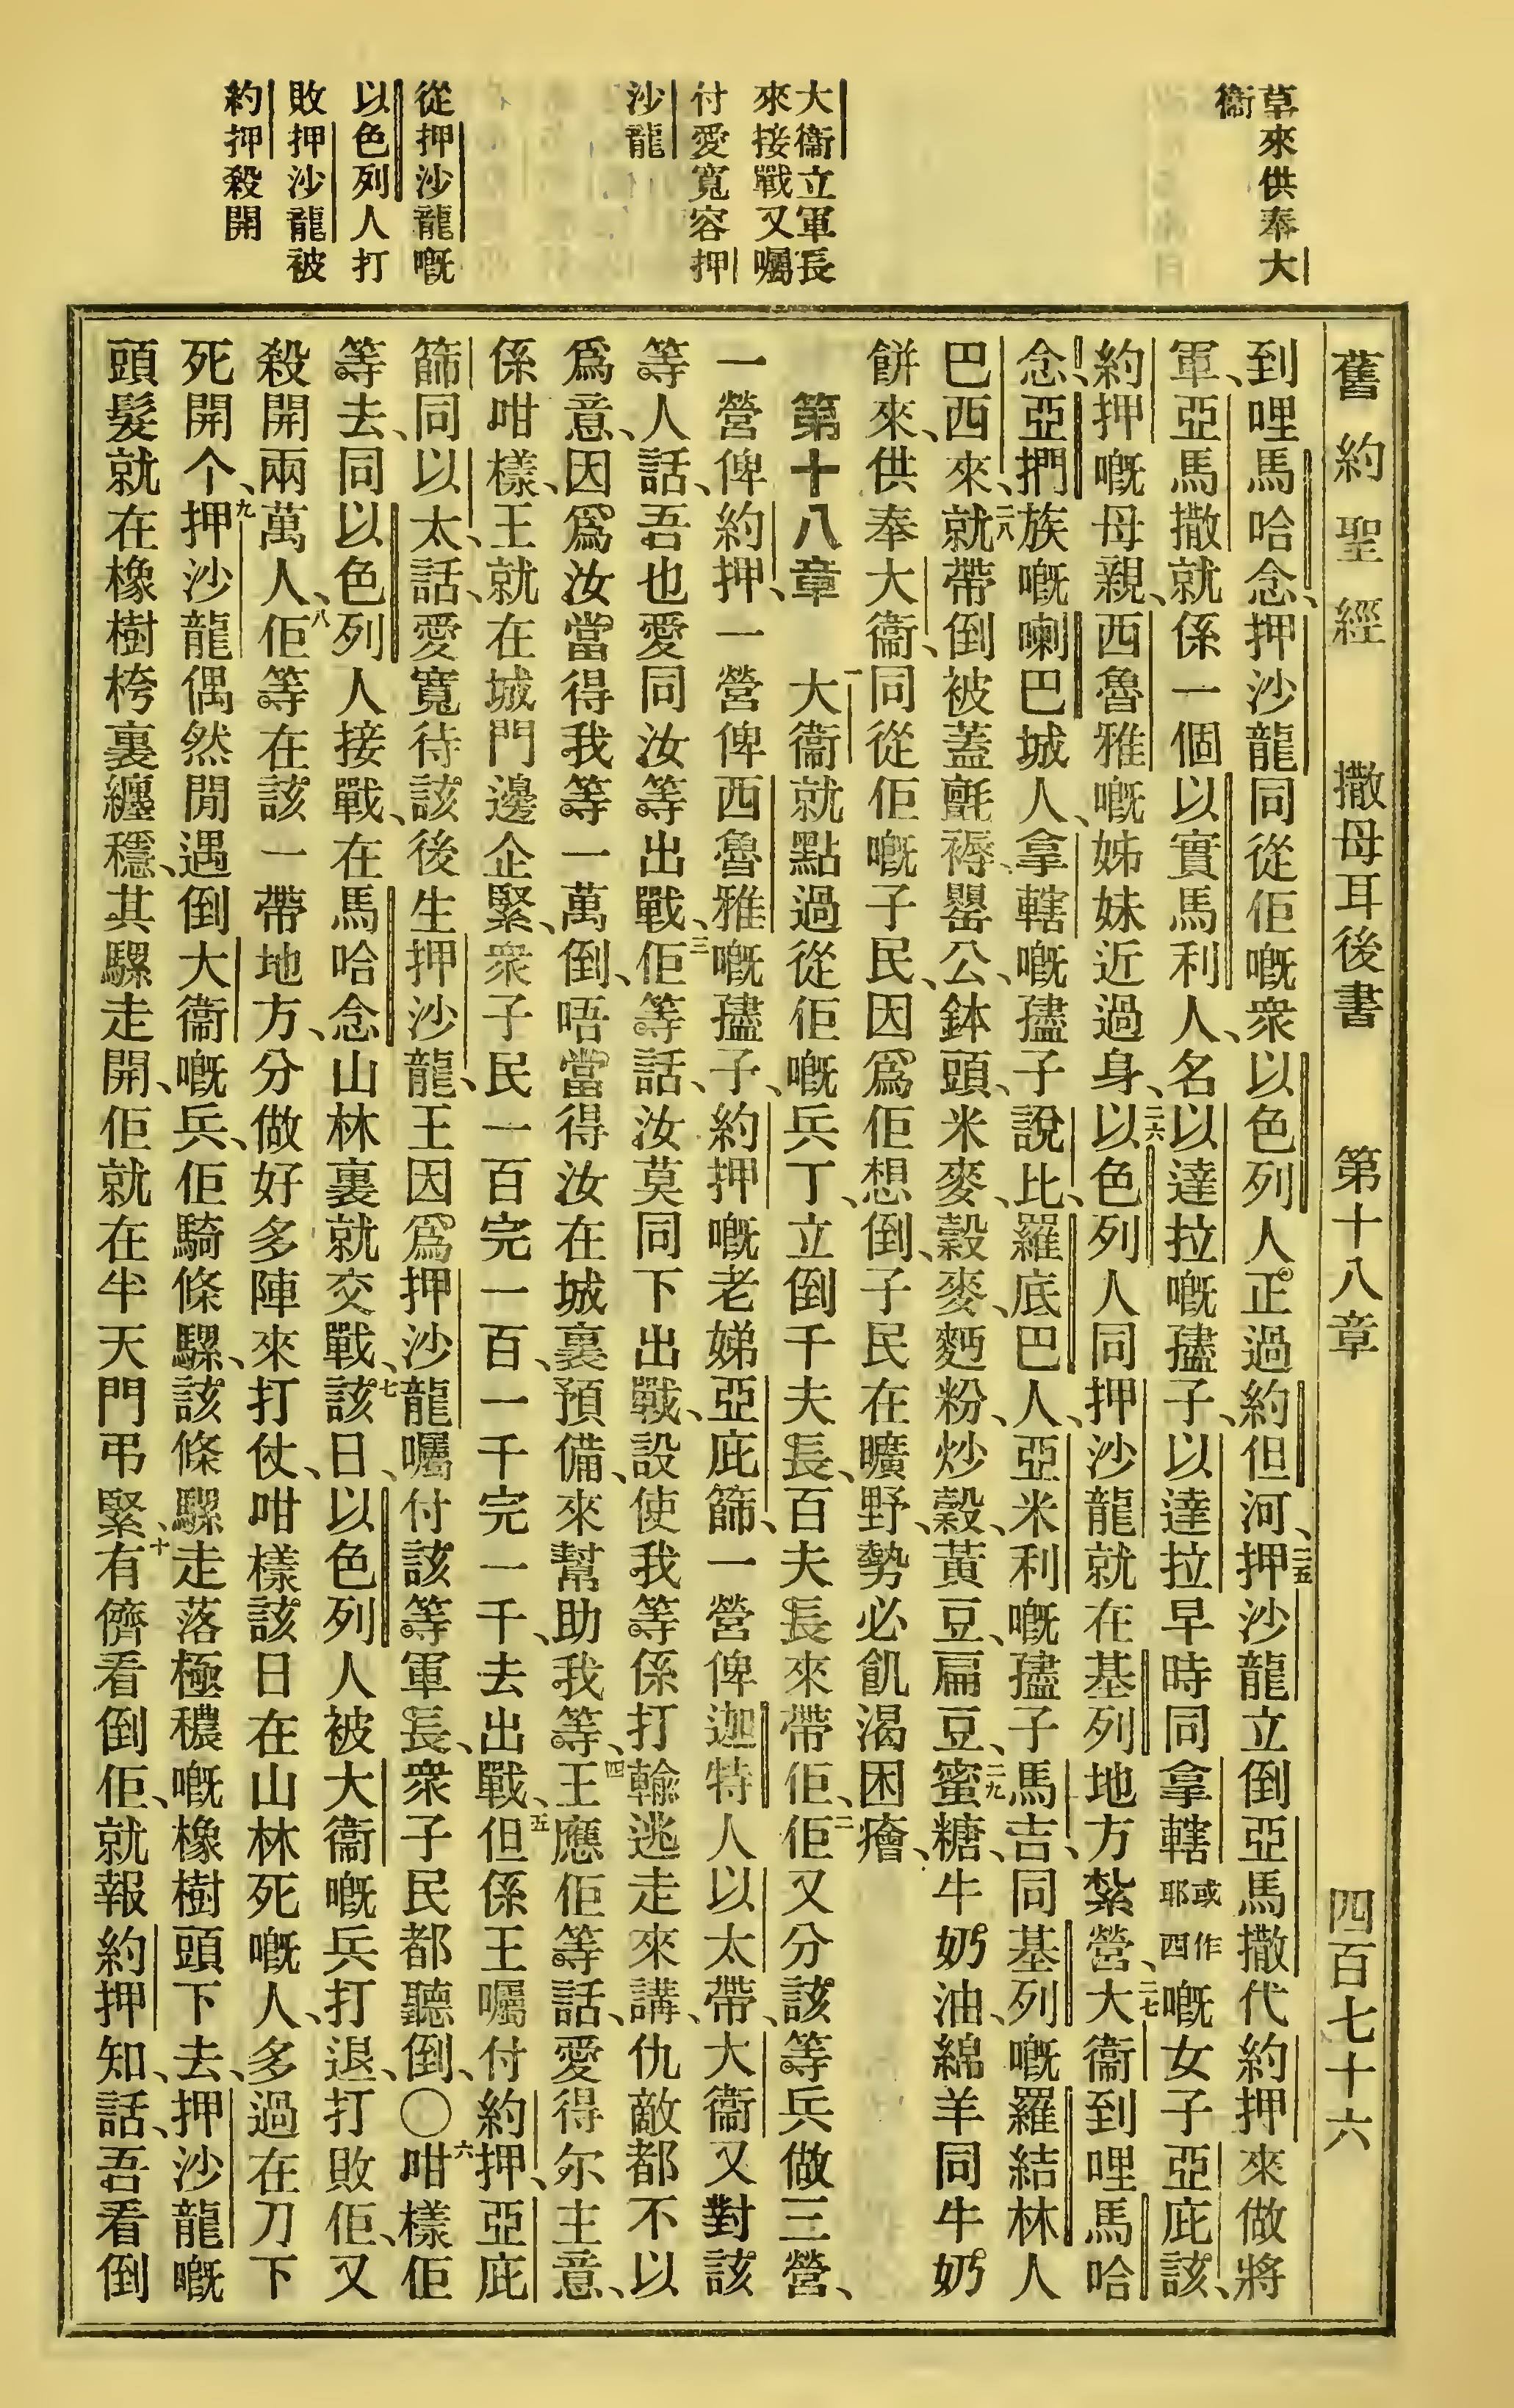 舊約聖經　撒母耳後書　第十八章　四百七十六
草來供奉大
衞
大衞立軍長
來接戰又囑
付愛寬容押
沙龍
從押沙龍嘅
以色列人打
敗押沙龍被
約押殺開
到哩馬哈念、押沙龍同從佢嘅衆以色列人正過約但河、二五押沙龍立倒亞馬撒代約押來做將
軍、亞馬撒就係一個以實馬利人、名以達拉嘅孻子、以達拉早時同拿轄或作耶西嘅女子亞庇該、
約押嘅母親、西魯雅嘅姊妹近過身、二六以色列人同押沙龍就在基列地方紮營、二七大衞到哩馬哈
念、亞捫族嘅喇巴城人、拿轄嘅孻子說比、羅底巴人、亞米利嘅孻子馬吉、同基列嘅羅結林人
巴西來、二八就帶倒被蓋氈褥、罌公、鉢頭、米麥、穀麥、麪粉、炒穀、黃豆、扁豆、二九蜜糖、牛奶油、綿羊同牛奶
餅來、供奉大衞、同從佢嘅子民、因爲佢想倒、子民在曠野、勢必飢渴困癐、
第十八章　一大衞就點過從佢嘅兵丁、立倒千夫長、百夫長來帶佢、二佢又分該等兵做三營、
一營俾約押、一營俾西魯雅嘅孻子、約押嘅老娣亞庇篩、一營俾迦特人以太帶、大衞又對該
等人話、吾也愛同汝等出戰、三佢等話、汝莫同下出戰、設使我等係打輸逃走來講、仇敵都不以
爲意、因爲汝當得我等一萬倒、唔當得汝在城裏預備、來幫助我等、四王應佢等話、愛得尔主意、
係咁樣、王就在城門邊企緊、衆子民一百完一百、一千完一千、去出戰、五但係王囑付約押、亞庇
篩同以太、話、愛寬待該後生押沙龍、王因爲押沙龍囑付該等軍長、衆子民都聽倒、〇六咁樣佢
等去、同以色列人接戰、在馬哈念山林裏就交戰、七該日、以色列人被大衞嘅兵打退、打敗佢、又
殺開兩萬人、八佢等在該一帶地方、分做好多陣來打仗、咁樣該日在山林死嘅人、多過在刀下
死開个、九押沙龍偶然閒遇倒大衞嘅兵、佢騎條騾、該條騾走落極穠嘅橡樹頭下去、押沙龍嘅
頭髮就在橡樹桍裏纏穩、其騾走開、佢就在半天門弔緊、十有儕看倒佢、就報約押知、話、吾看倒